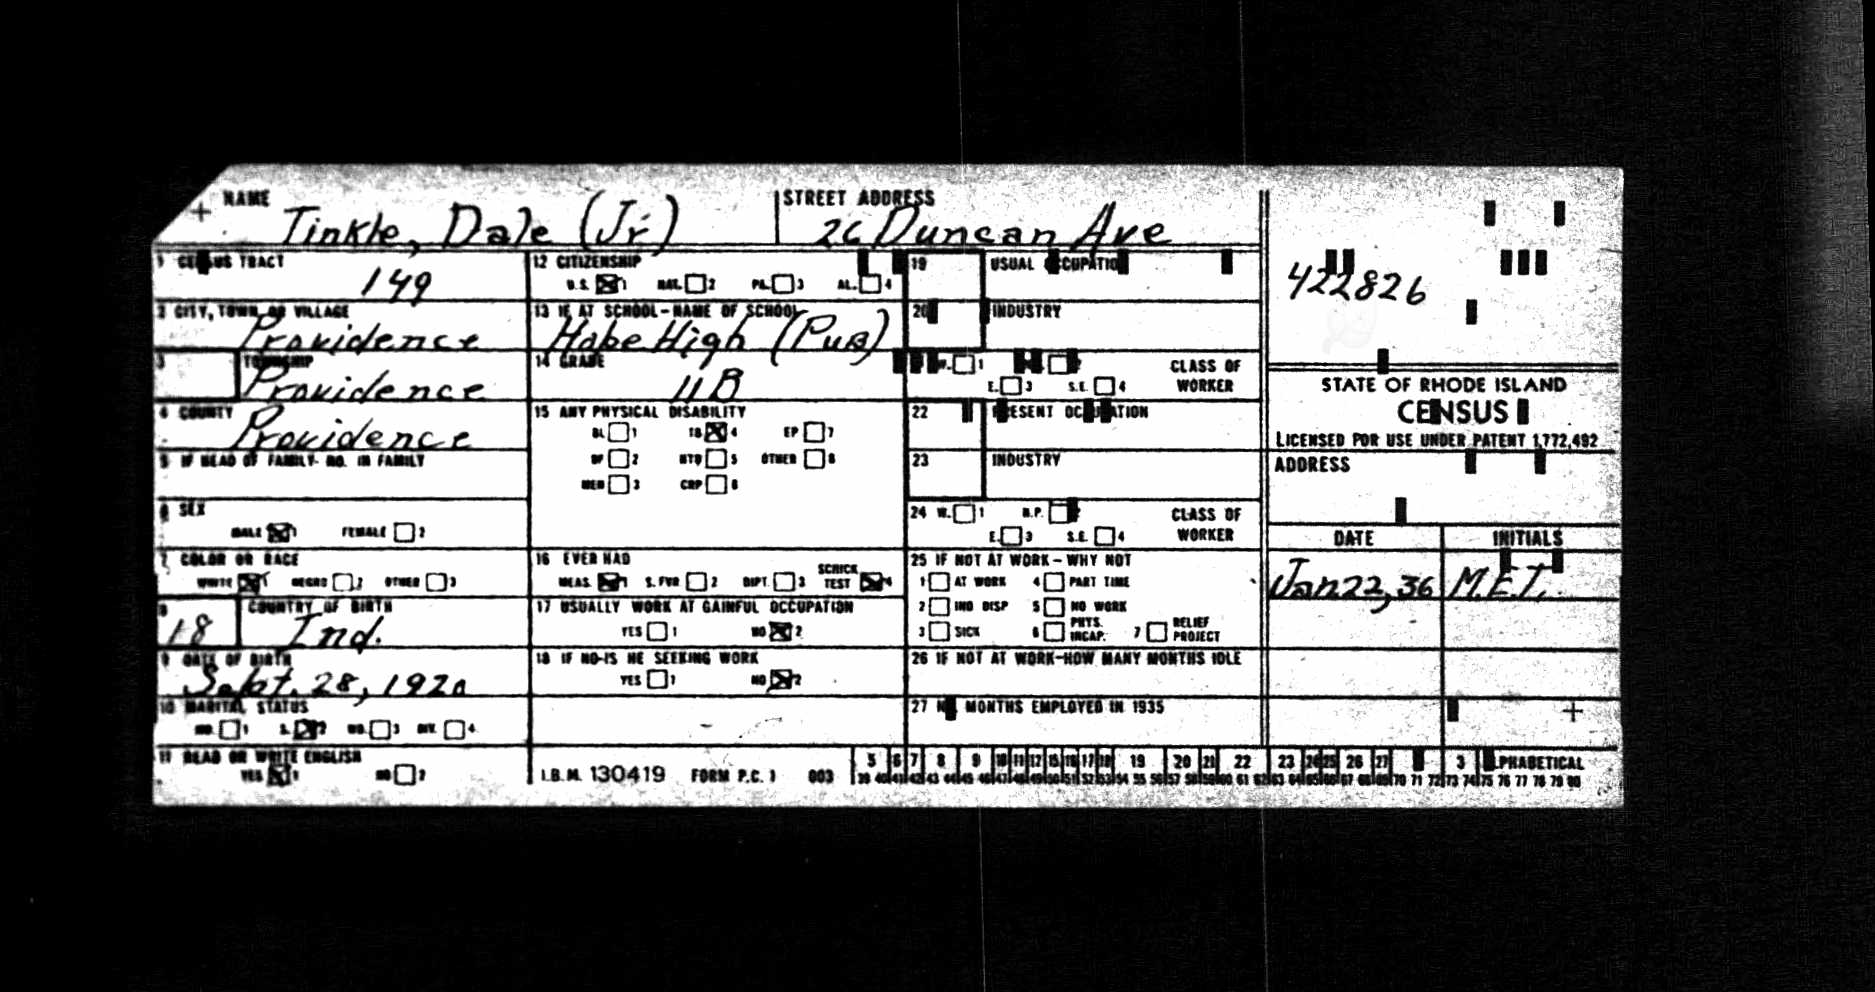 NAME
Tinkle, Dale (Jr)
STREET ADDRESS
26 Duncan Ave
1 CENSUS TRACT
149
2 CITY, TOWN OR VILLAGE
Providence
3 TOWNSHIP
Providence
4 COUNTY
Providence
5 IF HEAD OF FAMILY- NO. IN FAMILY
6 SEX
MALE 1 FEMALE 2
7 COLOR OR RACE
WHITE 1 NEGRO 2 OTHER 3
8 COUNTRY OF BIRTH
18 Ind.
9 DATE OF BIRTH
Sept. 28, 1920
10 MARITAL STATUS
1 S. 2 WD. 3 DIV. 4
11 READ OR WRITE ENGLISH
YES 1 NO 2
12 CITIZENSHIP
U.S. 1 NAT. 2 PA. 3 AL. 4
13 IF AT SCHOOL-NAME OF SCHOOL
Hope High (Pub)
14 GRADE
11B
15 ANY PHYSICAL DISABILITY
BL 1 TB 4 EP 7
DF 2 HTD 5 OTHER 8
MEN 3 CRP 6
16 EVER HAD
MEAS. 1 S. FVR 2 DIPT. 3 SCHICK TEST 4
17 USUALLY WORK AT GAINFUL OCCUPATION
YES 1 NO 2
18 IF NO-IS HE SEEKING WORK
YES 1 NO 2
I.B.M. 130419 FORM P.C. 1 003
19 USUAL OCCUPATION
20 INDUSTRY
W. 1 2 CLASS OF
E. 3 S.E. 4 WORKER
22 PRESENT OCCUPATION
23 INDUSTRY
24 W. 1 N.P. 2 CLASS OF
E. 3 S.E. 4 WORKER
25 IF NOT AT WORK-WHY NOT
1 AT WORK 4 PART TIME
2 IND DISP 5 NO WORK
3 SICK 6 PHYS. INCAP. 7 RELIEF PROJECT
26 IF NOT AT WORK-HOW MANY MONTHS IDLE
27 NO. MONTHS EMPLOYED IN 1935
422826
STATE OF RHODE ISLAND
CENSUS
LICENSED FOR USE UNDER PATENT 1,772,492
ADDRESS
DATE INITIALS
Jan 22, 36 M.E.T.
5 6 7 8 9 10 11 12 15 16 17 18 19 20 21 22 23 24 25 26 27 3 ALPHABETICAL
39 40 41 42 43 44 45 46 47 48 49 50 51 52 53 54 55 56 57 58 59 60 61 62 63 64 65 66 67 68 69 70 71 72 73 74 75 76 77 78 79 80